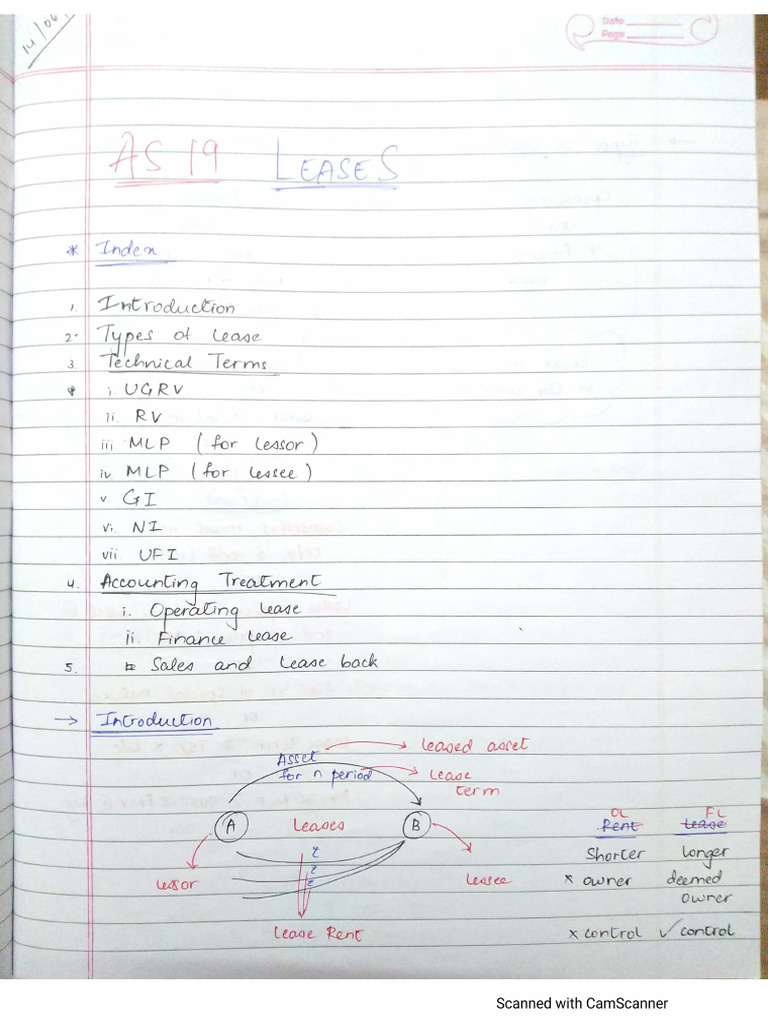 14/06
Date
Page
AS 19 LEASES
* Index
1. Introduction
2- Types of Lease
3. Technical Terms
i. UGRV
ii. RV
iii MLP (for Lessor)
iv MLP (for Lessee)
v. GI
vi. NI
vii. UFI
4. Accounting Treatment
i. Operating Lease
ii. Finance Lease
5. Sales and Lease back
→ Introduction
Asset → leased asset
for n period → Lease
term
A Leases B
OL FL
Rent Lease
Shorter Longer
lessor
lessee
x owner deemed
owner
Lease Rent
x control ✓ control
Scanned with CamScanner